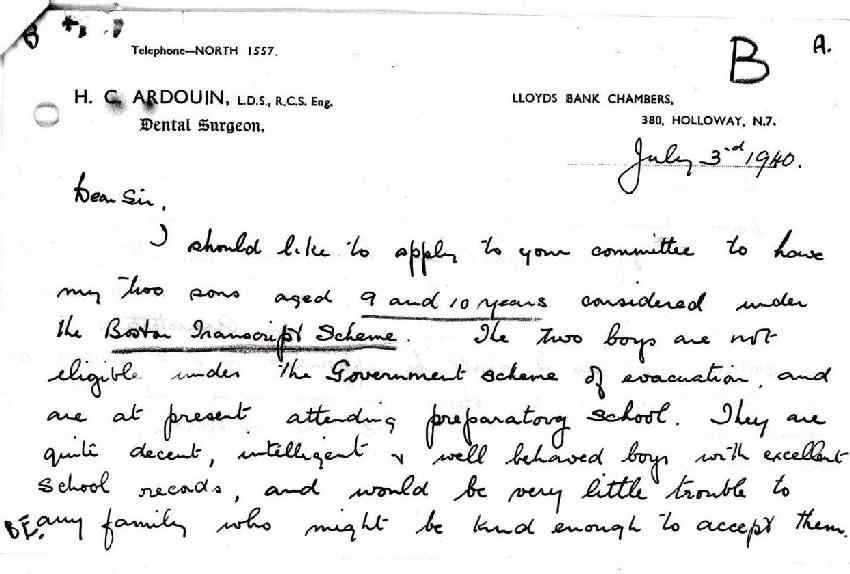 B
Telephone—NORTH 1557.
B
A.
H. C. ARDOUIN, L.D.S., R.C.S. Eng.
Dental Surgeon.
LLOYDS BANK CHAMBERS,
380, HOLLOWAY, N.7.
July 3rd 1940.
Dear Sir,
I should like to apply to your committee to have
my two sons aged 9 and 10 years considered under
the Boston Transcript Scheme. The two boys are not
eligible under the Government scheme of evacuation, and
are at present attending preparatory school. They are
quite decent, intelligent & well behaved boys with excellent
school records, and would be very little trouble to
BE. any family who might be kind enough to accept them.